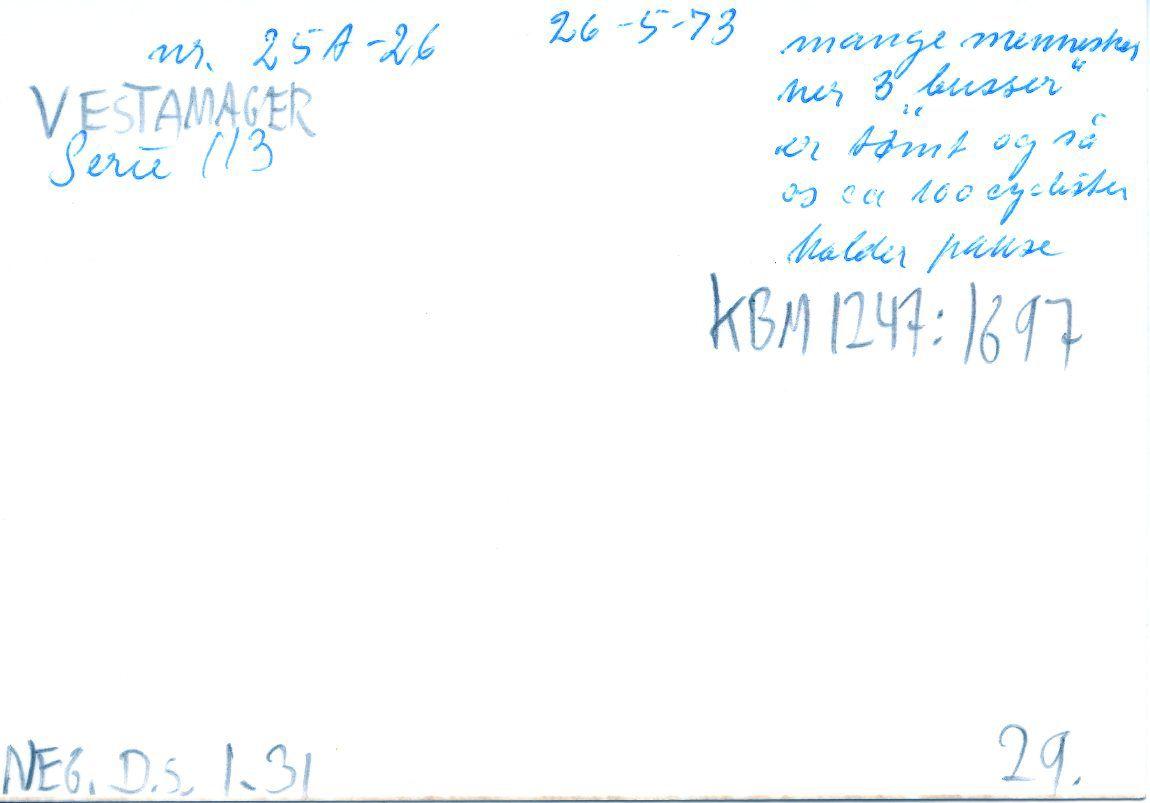 nr. 25A-26
26-5-73
VESTAMAGER
Serie 113
mange mennesker
her 3 "busser"
er tømt og så
os ca 100 cyclister
holder pause
KBM 1247:1697
NEG. D.S. 1.31
29.